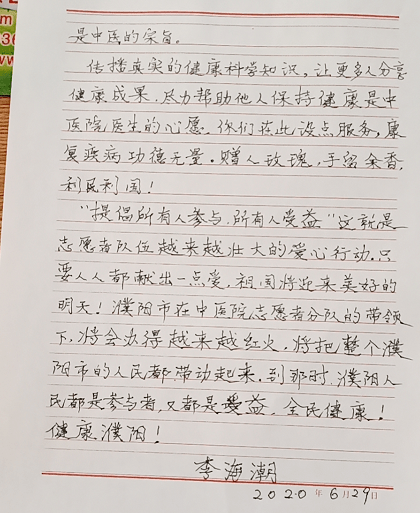 是中医的宗旨。
传播真实的健康科学知识，让更多人分享
健康成果，尽力帮助他人保持健康是中
医院医生的心愿。你们在此设点服务，康
复疾病功德无量。赠人玫瑰，手留余香，
利民利国！
“提倡所有人参与，所有人受益”这就是
志愿者队伍越来越壮大的爱心行动。只
要人人都献出一点爱，祖国将迎来美好的
明天！濮阳市在中医院志愿者分队的带领
下，将会办得越来越红火，将把整个濮
阳市的人民都带动起来。到那时，濮阳人
民都是参与者，又都是受益，全民健康！
健康濮阳！
李海潮
2020年6月29日